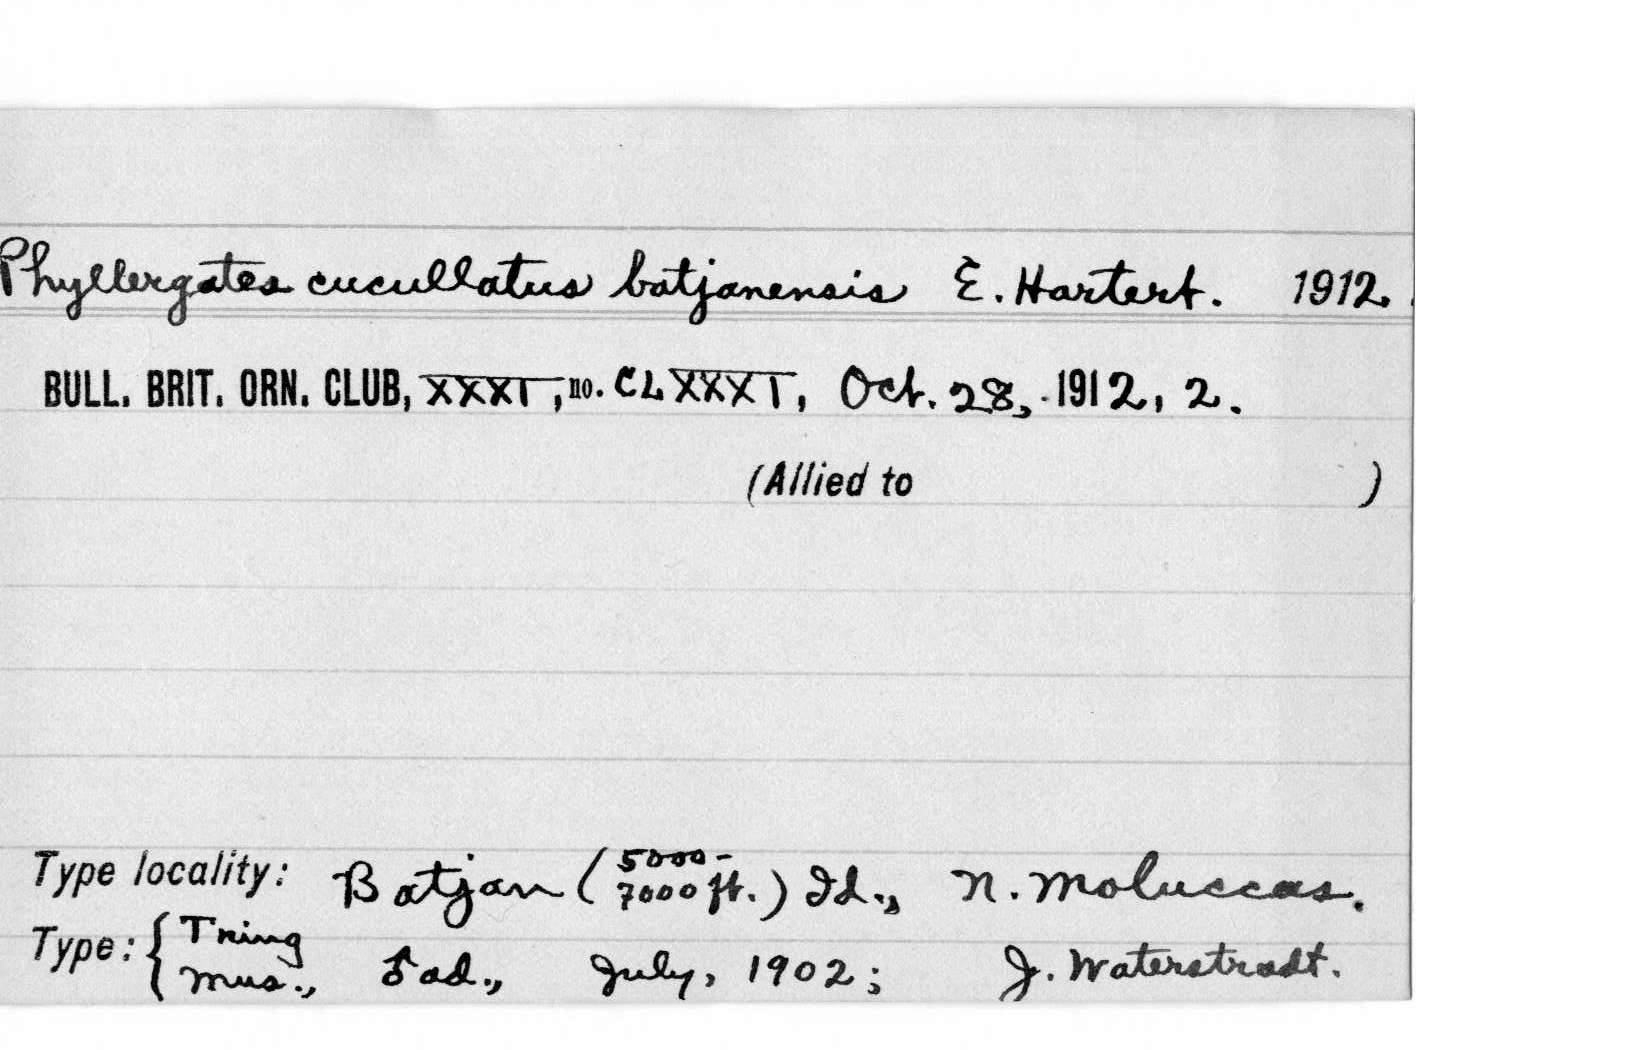 Phyllergates cucullatus batjanensis E. Hartert. 1912.
BULL. BRIT. ORN. CLUB, XXXI, no. CLXXXI, Oct. 28, 1912, 2.
(Allied to )
Type locality: Batjan (5000-7000 ft.) Id., N. Moluccas.
Type: { Tring Mus., ad., July, 1902; J. Waterstradt.